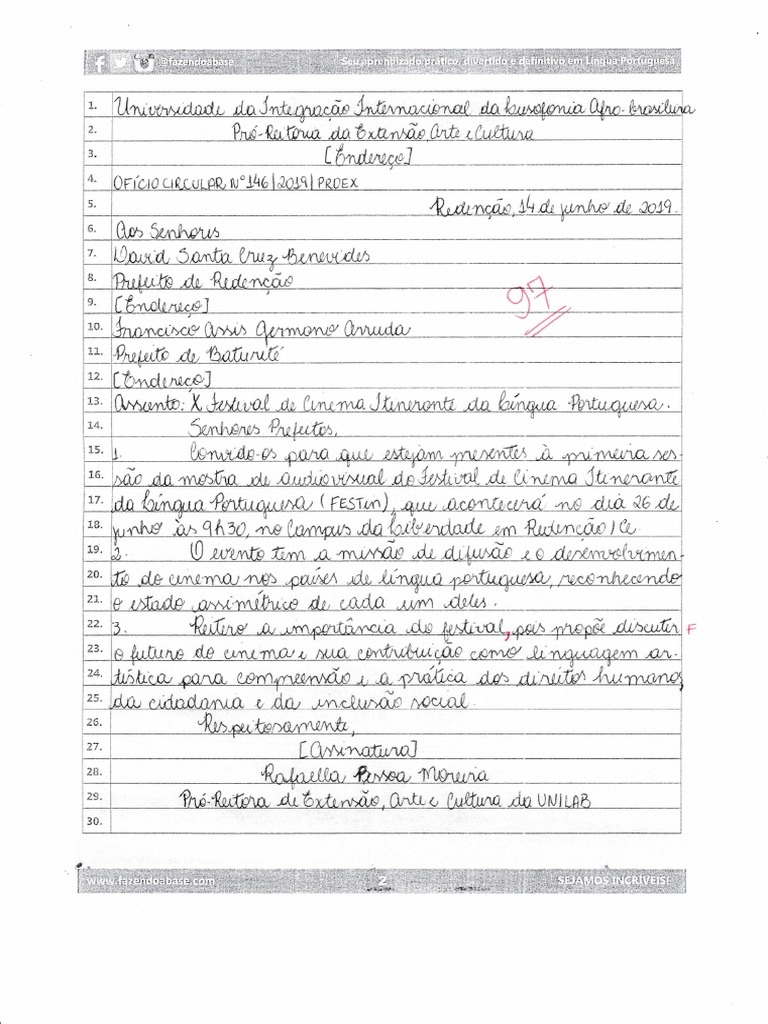 @fazendoabase Seu aprendizado prático, divertido e definitivo em Língua Portuguesa
1. Universidade da Integração Internacional da Lusofonia Afro-Brasileira
2. Pró-Reitoria da Extensão, Arte e Cultura
3. [Endereço]
4. OFÍCIO CIRCULAR Nº 146/2019/PROEX
5. Redenção, 14 de junho de 2019.
6. Aos Senhores
7. David Santa Cruz Benevides
8. Prefeito de Redenção
9. [Endereço]
97
10. Francisco Assis Germano Arruda
11. Prefeito de Baturité
12. [Endereço]
13. Assunto: X Festival de Cinema Itinerante da Língua Portuguesa.
14. Senhores Prefeitos,
15. 1. Convido-os para que estejam presentes à primeira ses-
16. são da mostra de audiovisual do Festival de Cinema Itinerante
17. da Língua Portuguesa (FESTin), que acontecerá no dia 26 de
18. junho às 9h30, no Campus da Liberdade em Redenção/Ce.
19. 2. O evento tem a missão de difusão e o desenvolvimen-
20. to do cinema nos países de língua portuguesa, reconhecendo
21. o estado assimétrico de cada um deles.
22. 3. Reitero a importância do festival, pois propõe discutir F
23. o futuro do cinema e sua contribuição como linguagem ar-
24. tística para compreensão e a prática dos direitos humanos,
25. da cidadania e da inclusão social.
26. Respeitosamente,
27. [Assinatura]
28. Rafaella Pessoa Moreira
29. Pró-Reitora de Extensão, Arte e Cultura da UNILAB
30.
www.fazendoabase.com 2 SEJAMOS INCRÍVEIS!